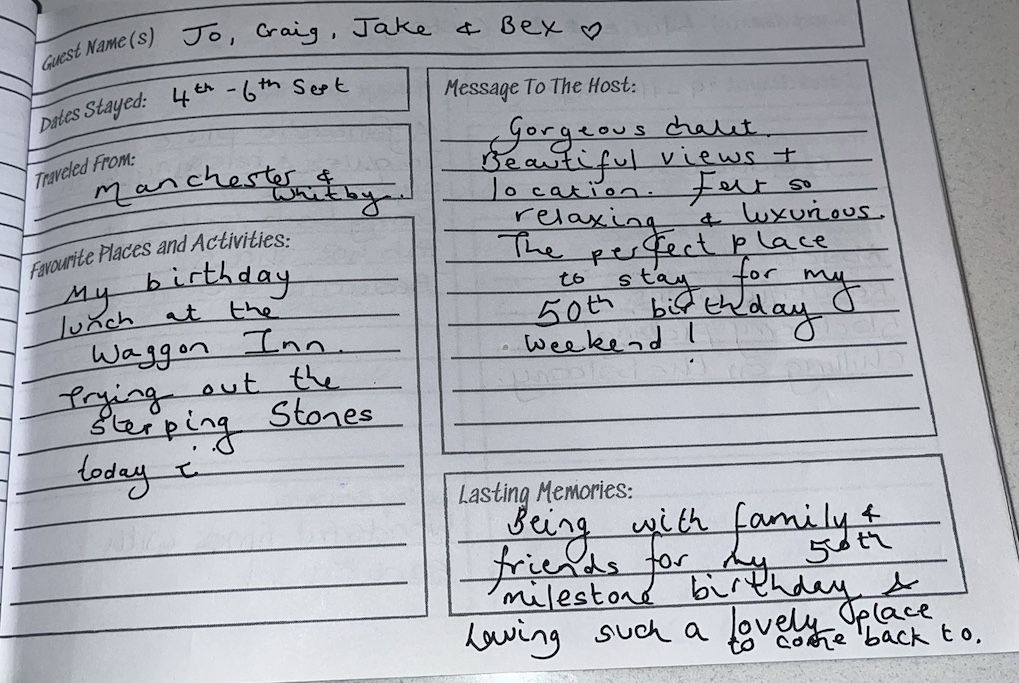 Guest Name(s) Jo, Craig, Jake & Bex ♡
Dates Stayed: 4th - 6th Sept
Traveled From:
Manchester &
Whitby.
Favourite Places and Activities:
My birthday
lunch at the
Waggon Inn.
Trying out the
stepping Stones
today
Message To The Host:
Gorgeous chalet.
Beautiful views +
location. Felt so
relaxing & luxurious.
The perfect place
to stay for my
50th birthday
weekend!
Lasting Memories:
Being with family &
friends for my 50th
milestone birthday &
having such a lovely place
to come back to.